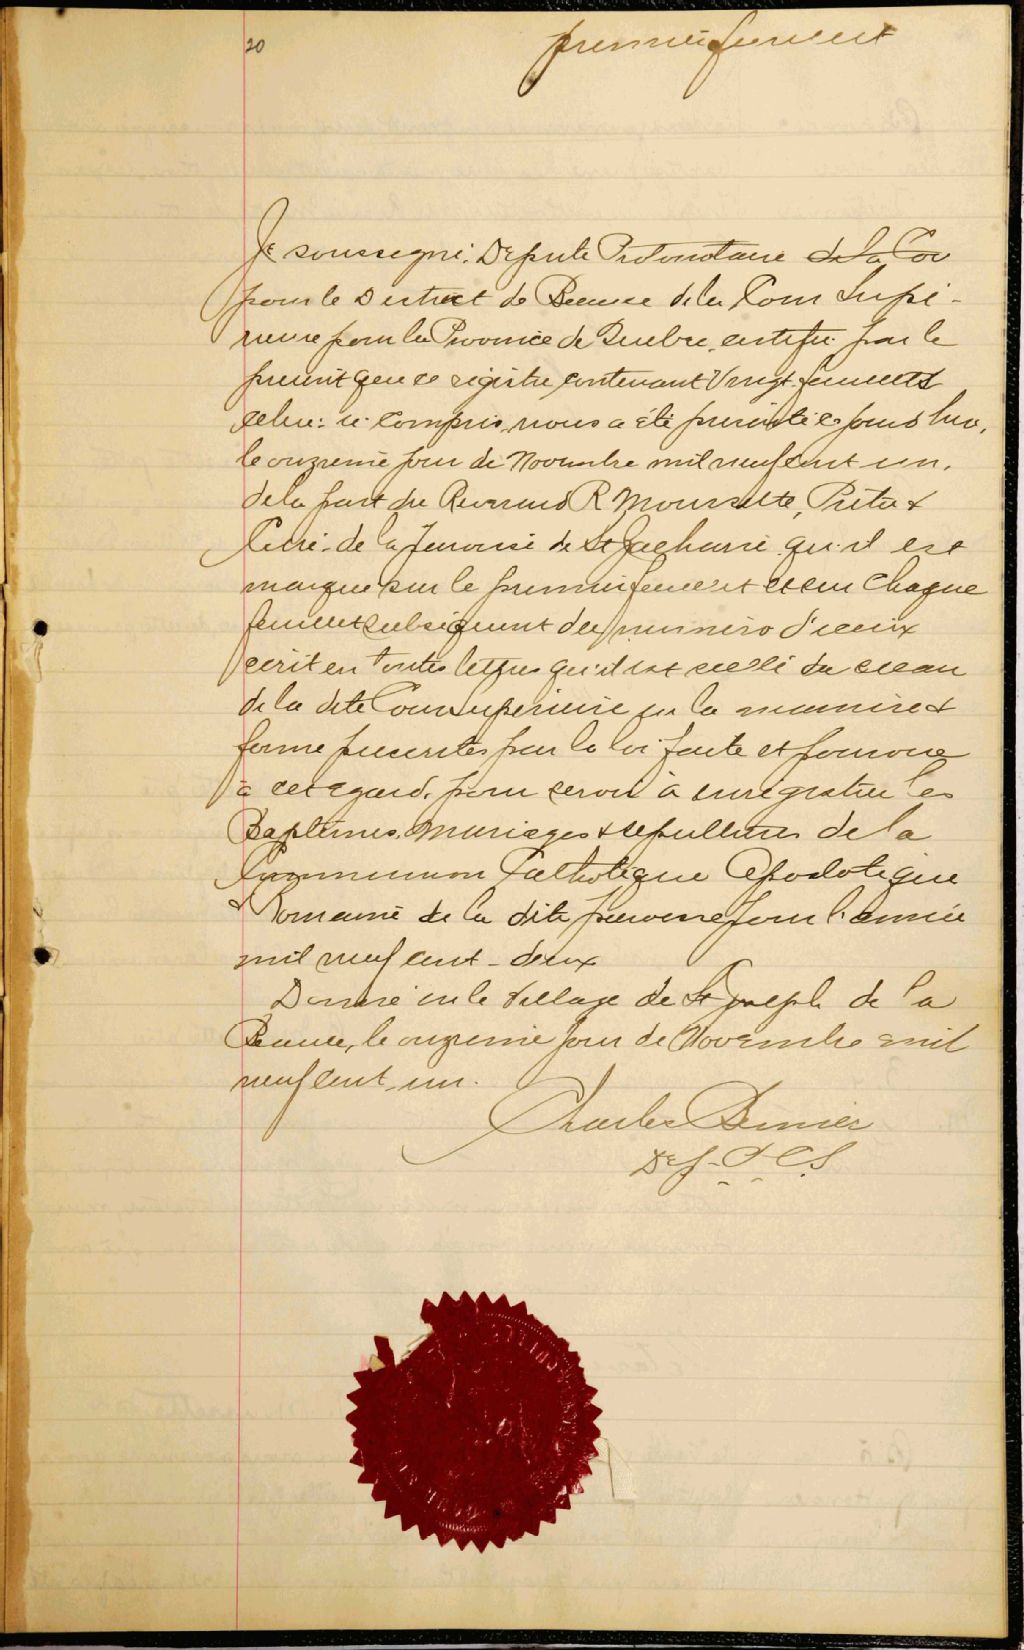 20
premier feuillet
Je soussigné, Député Protonotaire de la Cou
pour le District de Beauce de la Cour Supé-
rieure pour la Province de Québec, certifie par le
présent que ce registre contenant Vingt feuillets
celui-ci compris, nous a été présenté ce jourd'hui,
le onzième jour de Novembre mil neuf cent un,
de la part du Révérend R Mourette, Prêtre &
Curé de la Paroisse de St Zacharie qu'il est
marqué sur le premier feuillet et sur chaque
feuillet subséquent du numéro d'iceux
écrit en toutes lettres qu'il est scellé du sceau
de la dite Cour Supérieure en la manière &
forme prescrites par la loi faite et pourvue
à cet égard, pour servir à enrégistrer les
Baptêmes, Mariages & sépultures de la
Communion Catholique Apostolique
& Romaine de la dite paroisse pour l'année
mil neuf cent-deux
Donné en le Village de St Joseph de la
Beauce, le onzième jour de Novembre mil
neuf cent-un.
Charles Bernier
Dép. P. C. S.